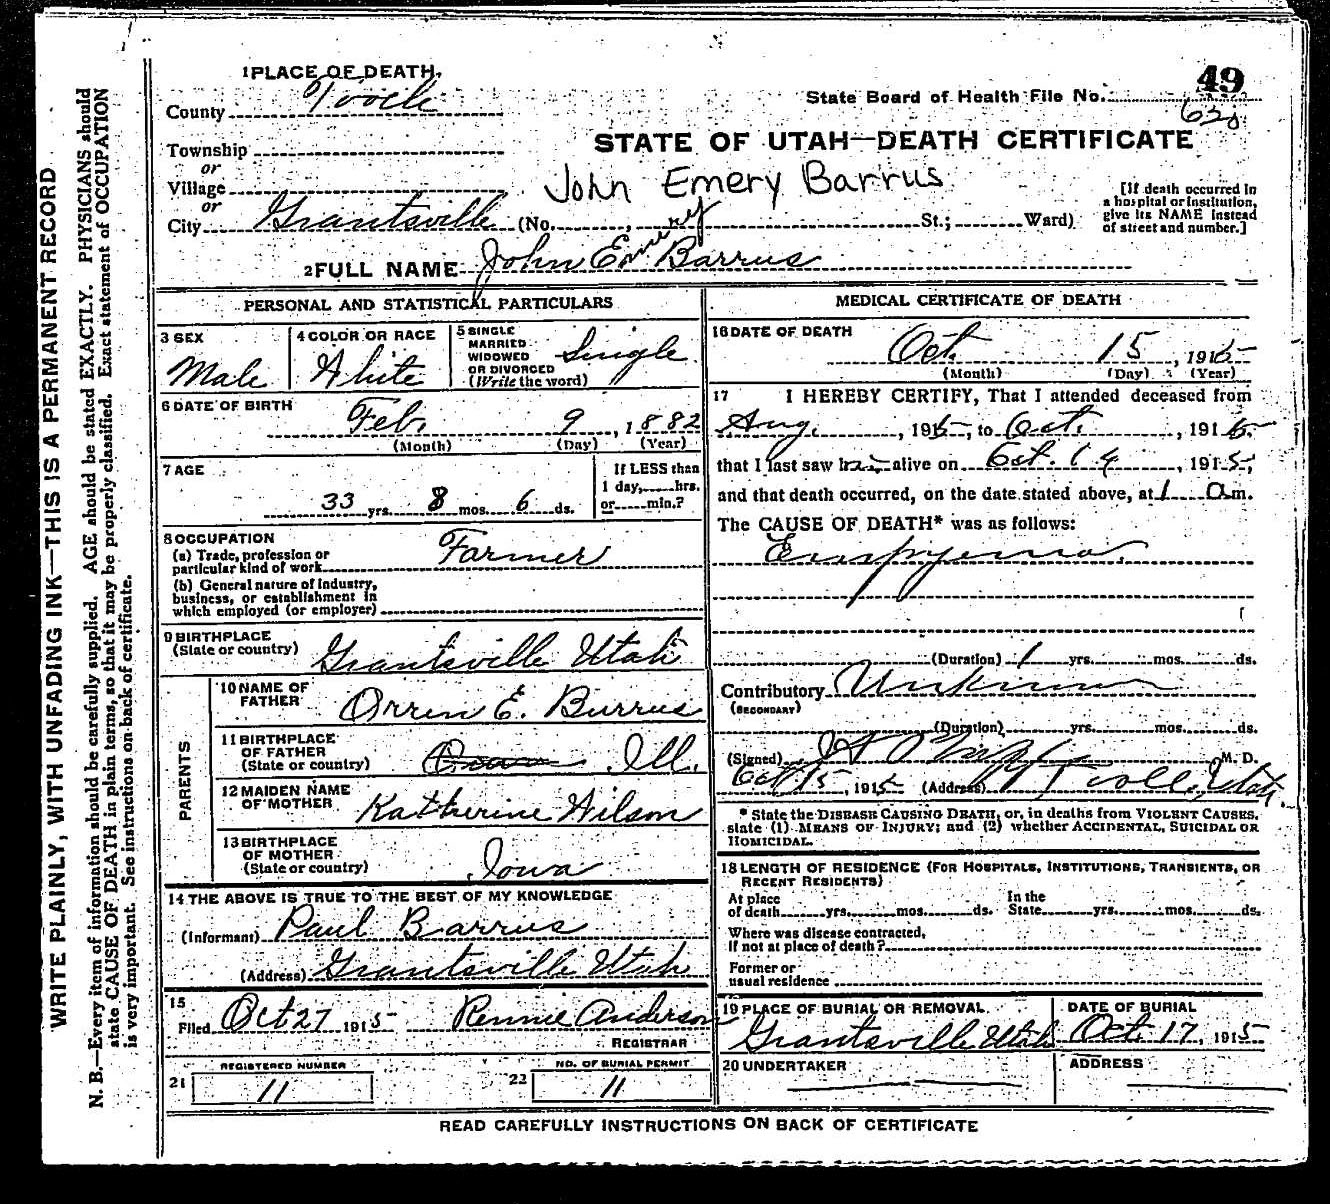 1 PLACE OF DEATH.
County Tooele
Township
or
Village
or
City Grantsville (No. , St.; Ward)
49
State Board of Health File No.
620
STATE OF UTAH—DEATH CERTIFICATE
John Emery Barrus
[If death occurred in
a hospital or institution,
give its NAME instead
of street and number.]
2 FULL NAME John Emery Barrus
PERSONAL AND STATISTICAL PARTICULARS
3 SEX
Male
4 COLOR OR RACE
White
5 SINGLE
MARRIED
WIDOWED
OR DIVORCED
(Write the word)
Single
6 DATE OF BIRTH
Feb. 9, 1882
(Month) (Day) (Year)
7 AGE
33 yrs. 8 mos. 6 ds.
If LESS than
1 day, hrs.
or min.?
8 OCCUPATION
(a) Trade, profession or
particular kind of work Farmer
(b) General nature of industry,
business, or establishment in
which employed (or employer)
9 BIRTHPLACE
(State or country) Grantsville Utah
PARENTS
10 NAME OF
FATHER Orrin E. Burrus
11 BIRTHPLACE
OF FATHER
(State or country) Ill.
12 MAIDEN NAME
OF MOTHER Katherine Wilson
13 BIRTHPLACE
OF MOTHER
(State or country) Iowa
14 THE ABOVE IS TRUE TO THE BEST OF MY KNOWLEDGE
(Informant) Paul Barrus
(Address) Grantsville Utah
15
Filed Oct 27 1915 Rennie Anderson
REGISTRAR
REGISTERED NUMBER
21 11
NO. OF BURIAL PERMIT
22 11
MEDICAL CERTIFICATE OF DEATH
16 DATE OF DEATH
Oct. 15, 1915
(Month) (Day) (Year)
17 I HEREBY CERTIFY, That I attended deceased from
Aug. , 1915, to Oct. , 1915.
that I last saw him alive on Oct. 14, 1915,
and that death occurred, on the date stated above, at 1 a m.
The CAUSE OF DEATH* was as follows:
Empyema.
(Duration) 1 yrs. mos. ds.
Contributory Unknown
(SECONDARY)
(Duration) yrs. mos. ds.
(Signed) M. D.
Oct 15, 1915 (Address) Tooele, Utah.
* State the DISEASE CAUSING DEATH, or, in deaths from VIOLENT CAUSES,
state (1) MEANS OF INJURY; and (2) whether ACCIDENTAL, SUICIDAL OR
HOMICIDAL.
18 LENGTH OF RESIDENCE (FOR HOSPITALS, INSTITUTIONS, TRANSIENTS, OR
RECENT RESIDENTS)
At place
of death yrs. mos. ds.
In the
State yrs. mos. ds.
Where was disease contracted,
if not at place of death?
Former or
usual residence
19 PLACE OF BURIAL OR REMOVAL
Grantsville Utah
DATE OF BURIAL
Oct. 17, 1915
20 UNDERTAKER
ADDRESS
READ CAREFULLY INSTRUCTIONS ON BACK OF CERTIFICATE
WRITE PLAINLY, WITH UNFADING INK—THIS IS A PERMANENT RECORD
N. B.—Every item of information should be carefully supplied. AGE should be stated EXACTLY. PHYSICIANS should
state CAUSE OF DEATH in plain terms, so that it may be properly classified. Exact statement of OCCUPATION
is very important. See instructions on back of certificate.